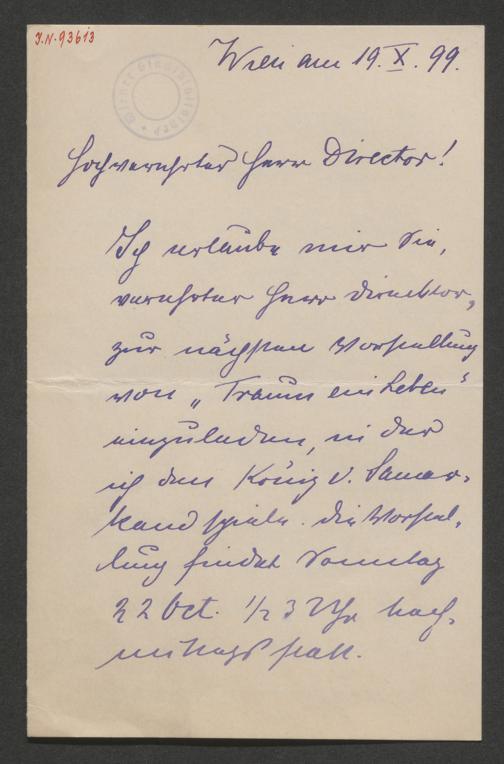 J.N. 93613
Wien am 19. X. 99.
Wiener Stadtbibliothek
Hochverehrter Herr Director!
Ich erlaube mir Sie,
verehrter Herr Direktor,
zur nächsten Vorstellung
von „Traum ein Leben“
einzuladen, in der
ich den König v. Samar-
kand spiele. Die Vorstel-
lung findet Sonntag
22 Oct. ½ 3 Uhr nach-
mittags statt.